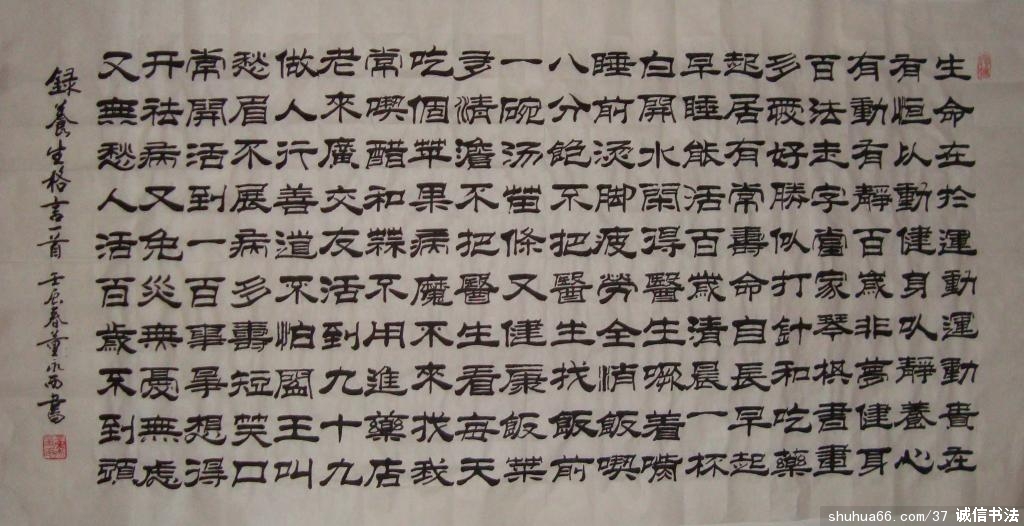 生命在於運動運動貴在
有恒以動健身以靜養心
有動有靜百歲非夢健身
百法走字當家琴棋書畫
多好勝似打針和吃藥
起居有常壽命自長早起
早睡能活百歲清晨一杯
白開水閑得醫生噘着嘴
睡前燙脚疲勞全消飯喫
八分飽不把醫生找飯前
一碗汤苗條又健康飯菜
多清澹不把醫生看每天
吃個苹果病魔不來找我
常喫醋和不用進藥店
老來廣交友活到九十九
做人行善道不怕閻王叫
愁眉不展病多壽短笑口
常開活到一百事事想得
开祛病又免災無憂無慮
又無愁人活百歲不到頭
錄養生格言一首 壬辰春董書
shuhua66.com/37 诚信书法